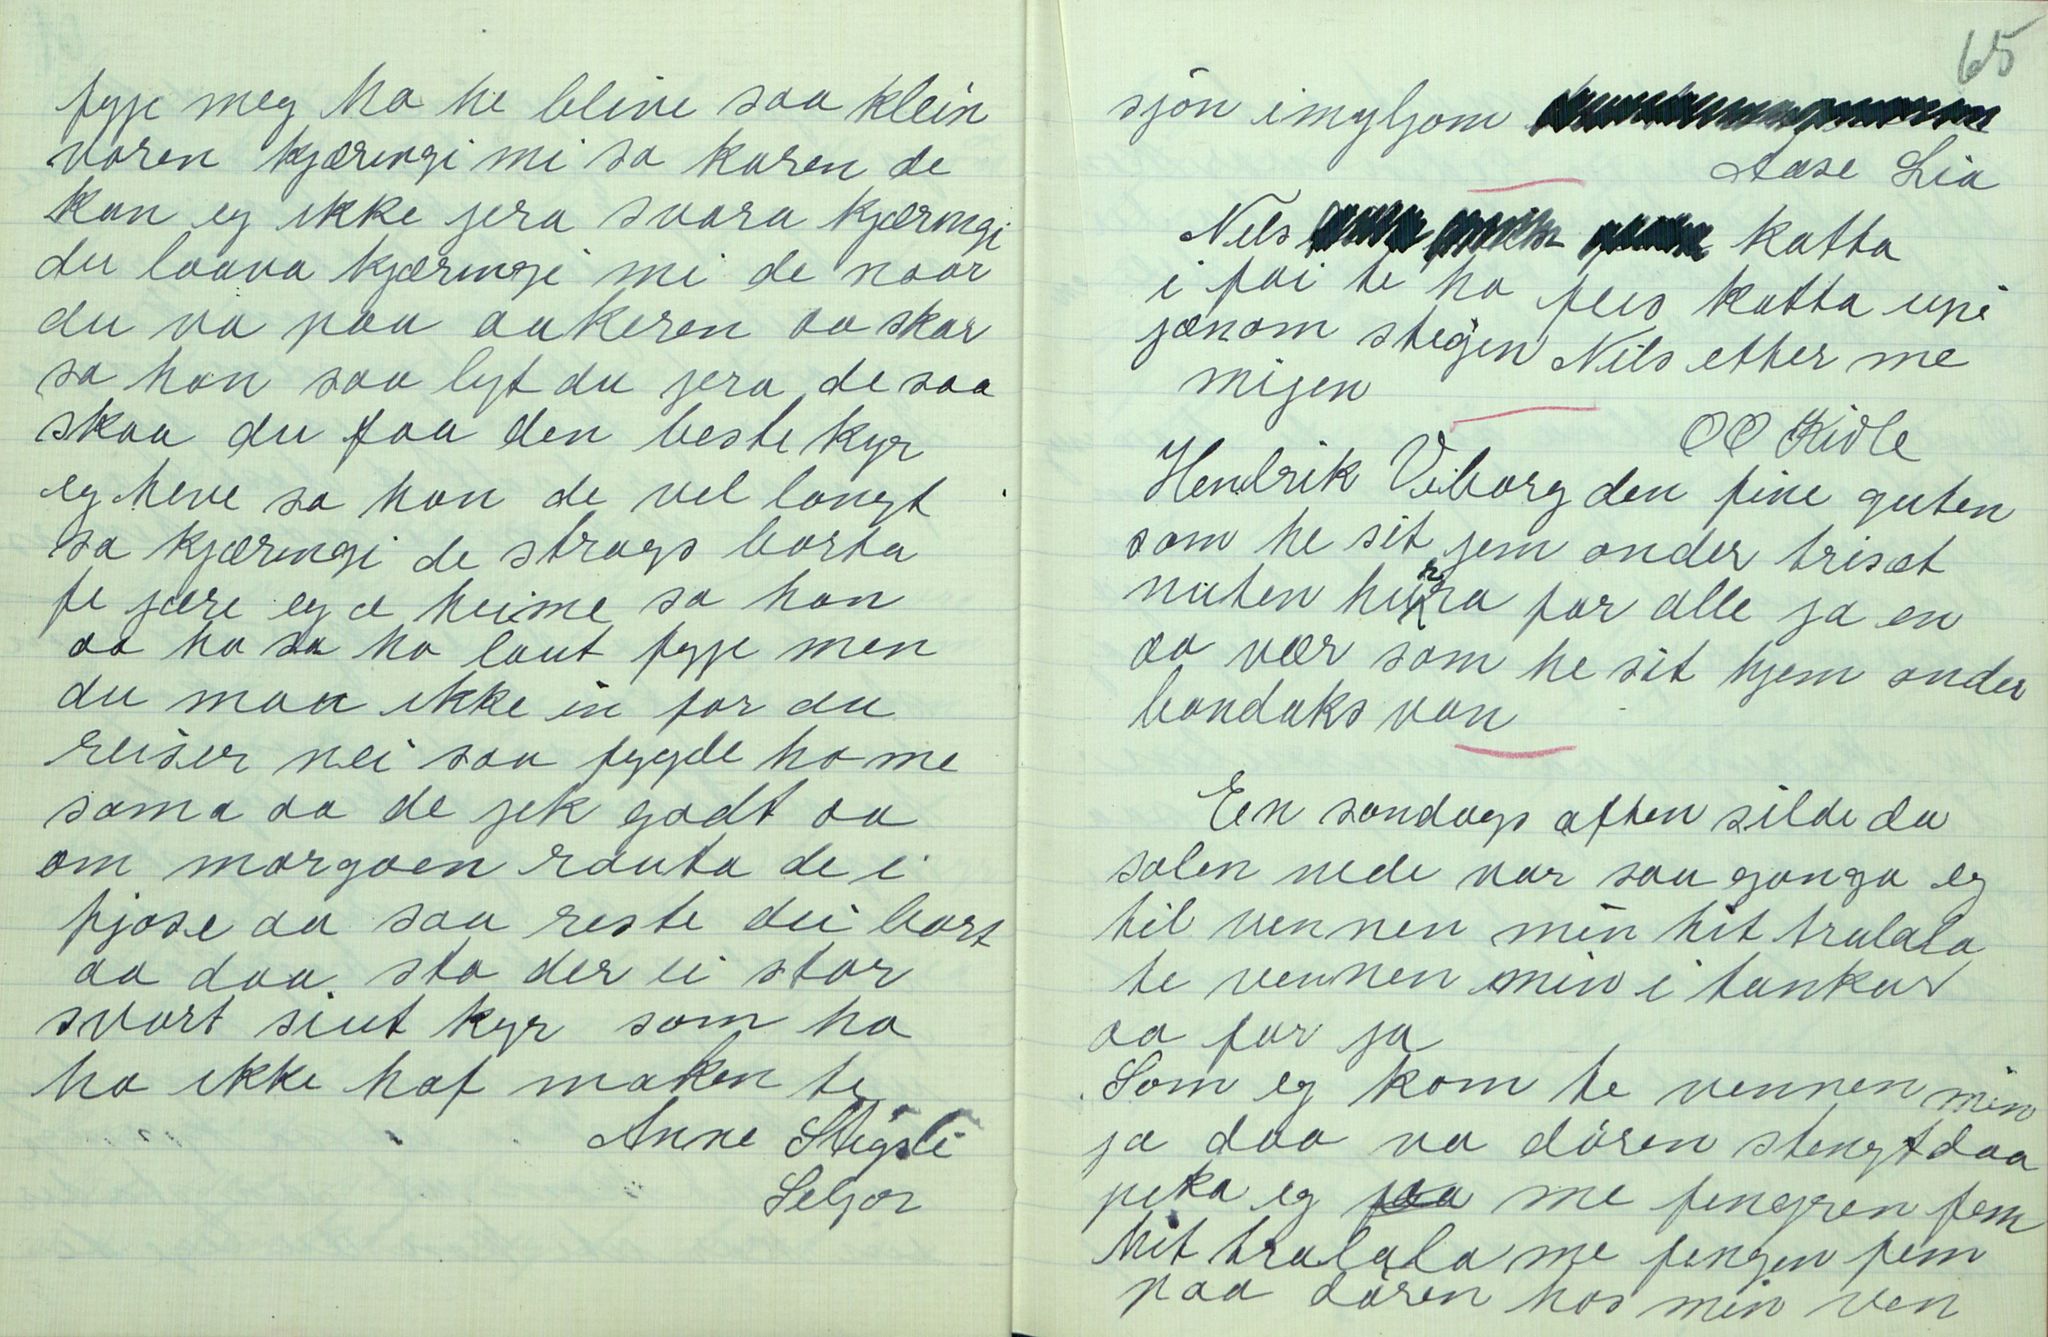 fyje meg Ho he blive saa klein
voren kjæringi mi sa karen de
kan eg ikke jera svara kjæringi
du laava kjæringi mi de naar
du va paa aakeren aa skar
sa han saa lyt du jera de saa
skaa du faa den beste kyr
eg heve sa han de vel langt
sa kjæringi de strags borta
te jære eg æ heime sa han
aa ho sa ho laut fyje men
du maa ikke in for du
reiser nei saa fygde ho me
sama aa de jek godt aa
om morgaen rauta de i
fjøse aa saa reste dei bort
aa daa sto der ei stor
svart siut kyr som ho
ha ikke haf maken te
Anne Stigsli
Seljor
65
sjön imyljom
Aase Lia
Nils katta
i fai te ho fleis katta upi
jænom steigen Nils etter me
mijen
O O Kivle
Hendrik Viborg den fine guten
som he sit jem onder trisæt
nuten hura for alle ja en
aa vær som he sit hjem onder
bandaks van
Een sondags aften silde da
solen nede var saa gonga eg
til vennen min hit tralala
te vennen min i tankar
aa for ja
Som eg kom te vennen min
ja daa va dören stengt daa
pika eg me fengren fem
hit tralala me fengen fem
paa dören hos min ven